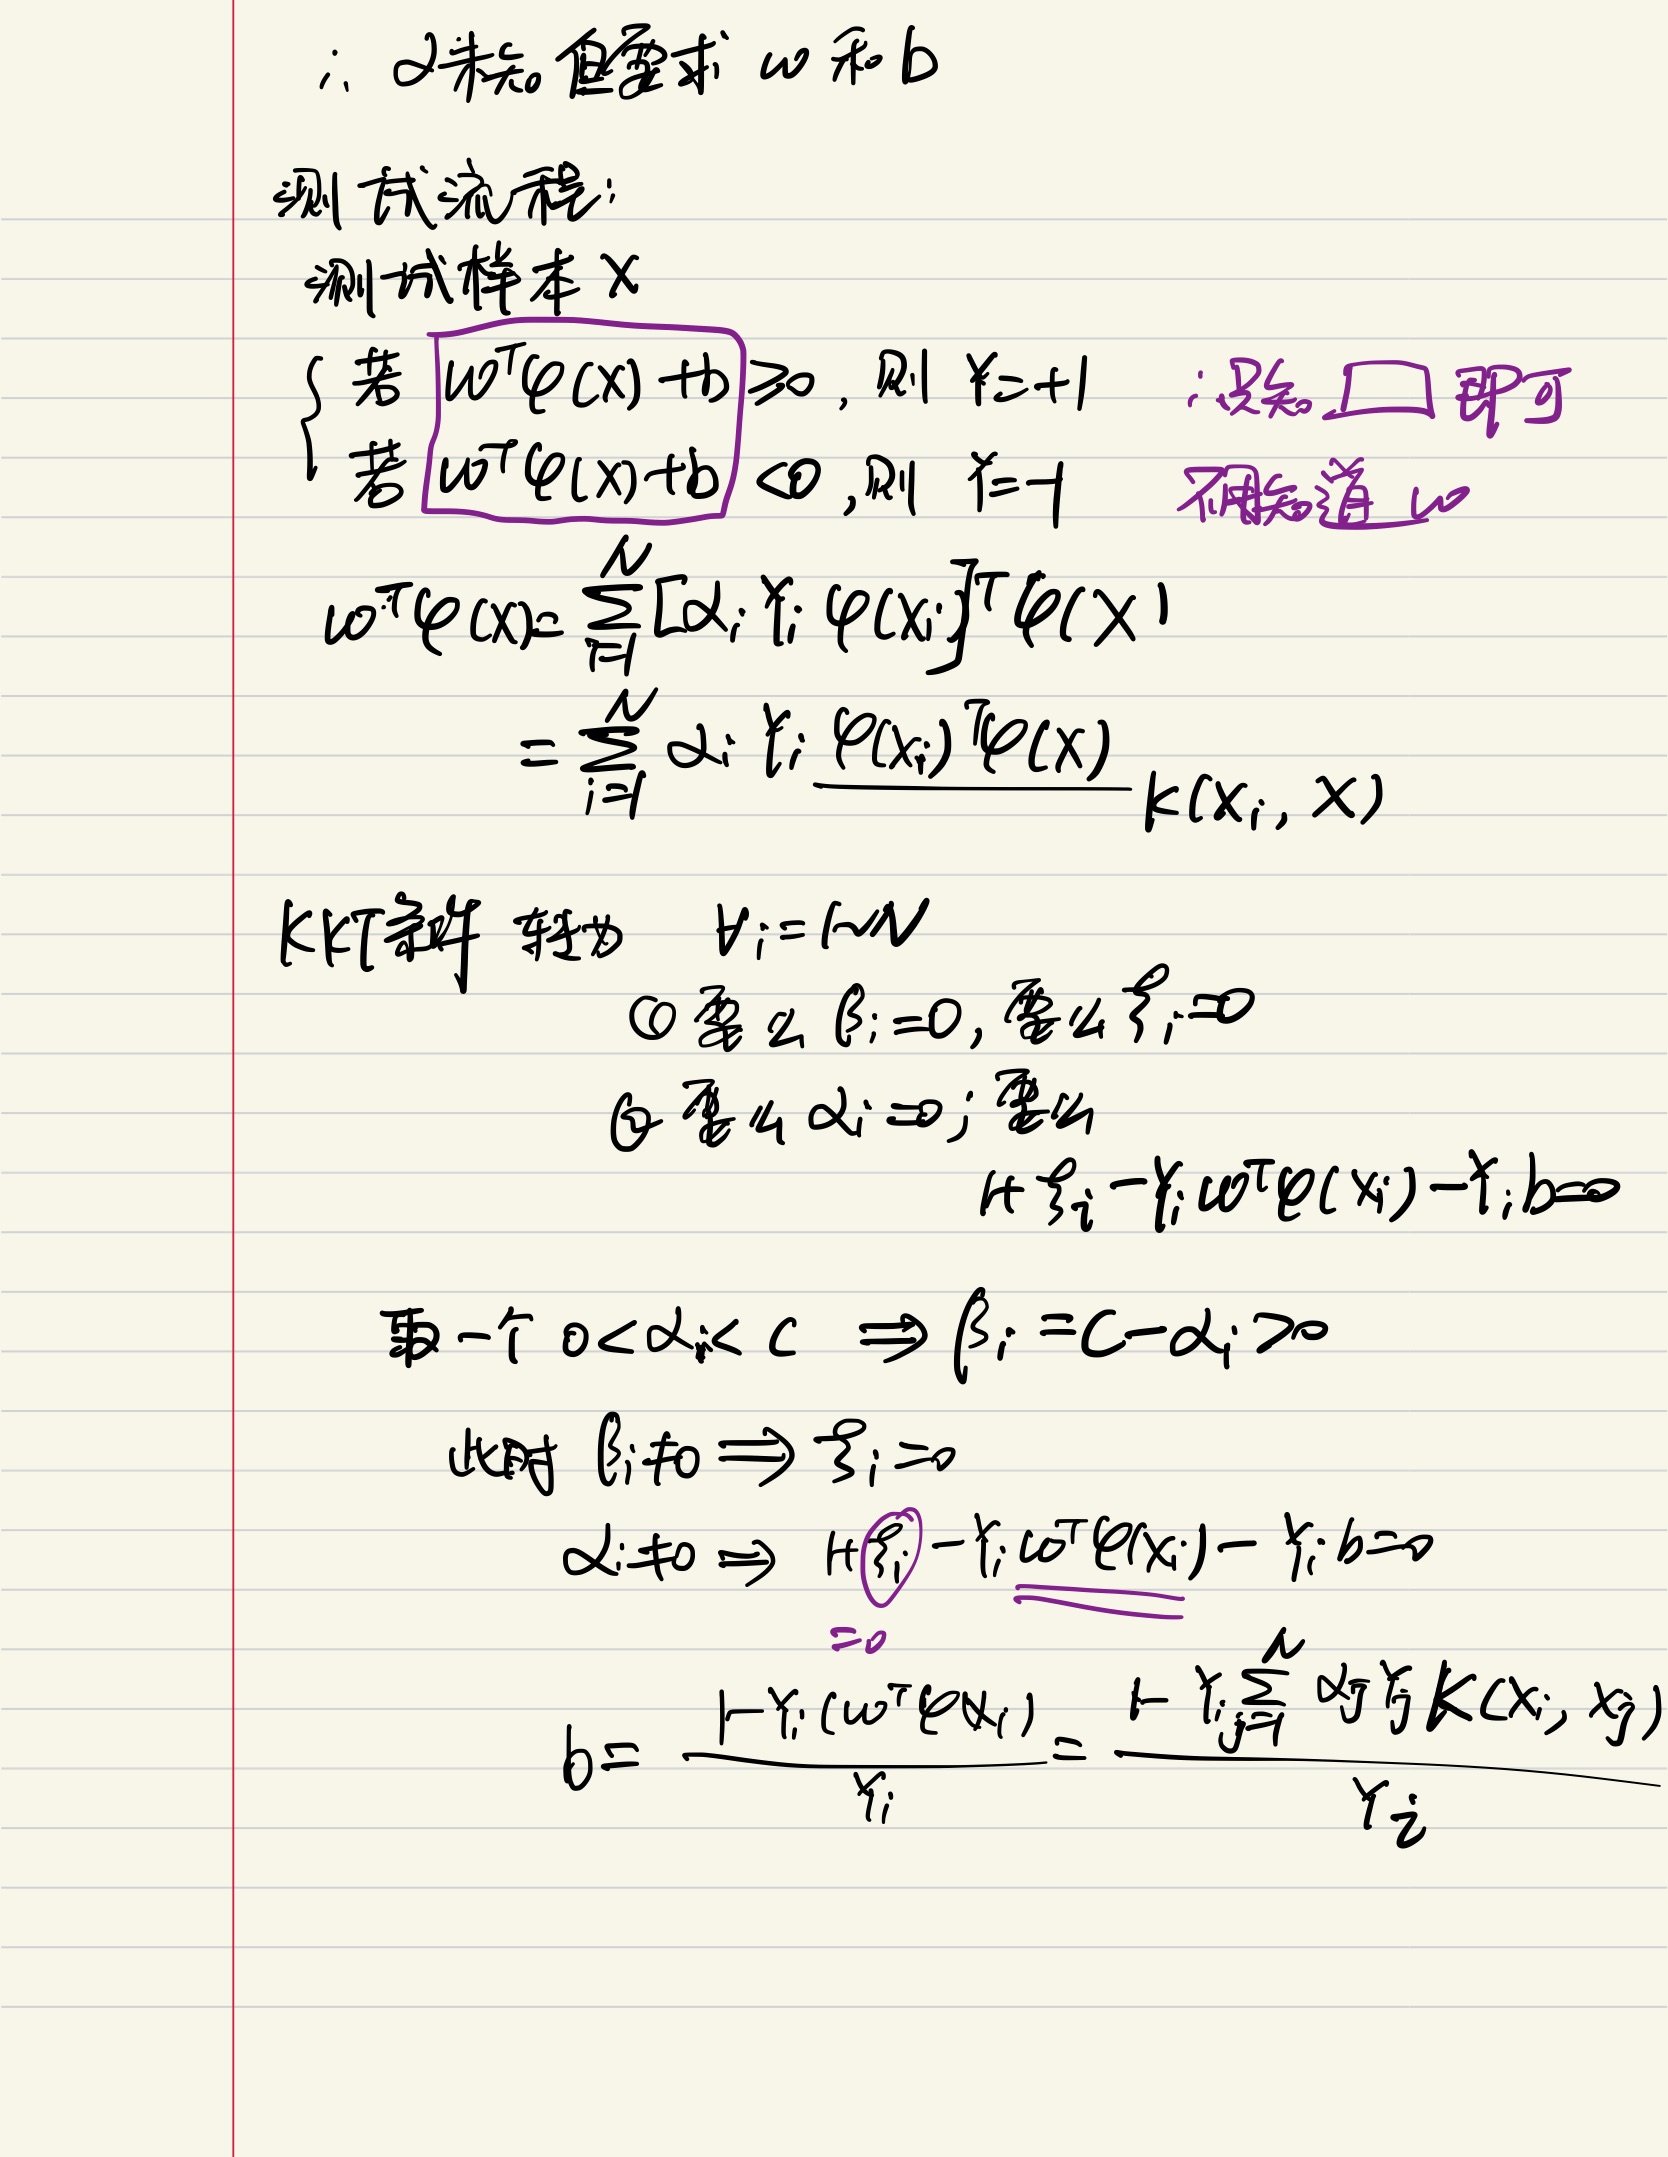 ∴ α未知 但要求 ω 和 b
测试流程:
测试样本 X
若 ω^T φ(X) + b ≥ 0, 则 Y = +1 ∴ 只知 □ 即可
若 ω^T φ(X) + b < 0, 则 Y = -1 不用知道 ω
ω^T φ(X) = ∑_{i=1}^{N} [α_i Y_i φ(X_i)]^T φ(X)
= ∑_{i=1}^{N} α_i Y_i φ(X_i)^T φ(X) K(X_i, X)
KKT条件 转为 ∀i = 1~N
① 要么 β_i = 0, 要么 ξ_i = 0
② 要么 α_i = 0; 要么
1 + ξ_i - Y_i ω^T φ(X_i) - Y_i b = 0
取一个 0 < α_i < C ⇒ β_i = C - α_i > 0
此时 β_i ≠ 0 ⇒ ξ_i = 0
α_i ≠ 0 ⇒ 1 + ξ_i - Y_i ω^T φ(X_i) - Y_i b = 0
= 0
b = \frac{1 - Y_i (ω^T φ(X_i)}{Y_i} = \frac{1 - Y_i ∑_{j=1}^{N} α_j Y_j K(X_i, X_j)}{Y_i}